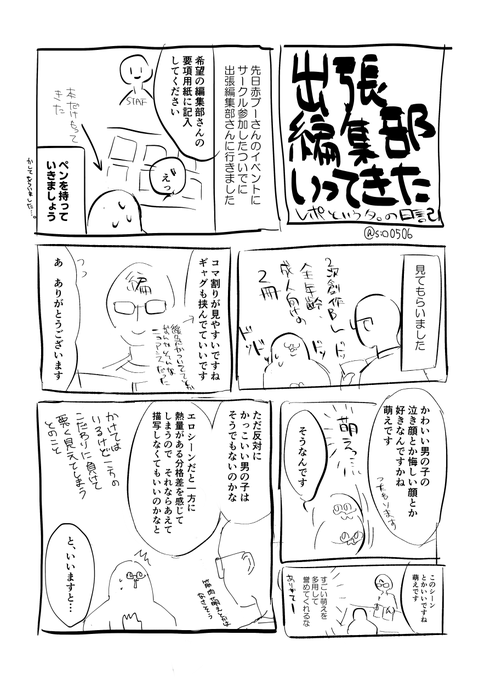 出張
編集部
いってきた
レポというか夕。の日記
@s:00506
先日赤ブーさんのイベントに
サークル参加したついでに
出張編集部さんに行きました
STAF
希望の編集部さんの
要項用紙に記入
してください
えっ
本だけもって
きた
ペンを持って
いきましょう
かしてもらいました…。
見てもらいました
2次創作BL
全年齢・
成人向けの
2冊
ドッ
ドッ
編
コマ割りが見やすいですね
ギャグも挟んでていいです
あ ありがとうございます
かわいい男の子の
泣き顔とか悔しい顔とか
好きなんですかね
萌えです
萌え…
そうなんです
このシーン
とかいいですね
萌えです
すごい萌えを
多用して
誉めてくれるな
ありがてー
ただ反対に
かっこいい男の子は
そうでもないのかな
エロシーンだと一方に
熱量がある分格差を感じて
しまうので それならあえて
描写しなくてもいいのかなと
かけては
いるけど一方の
こだわりに負けて
悪く見えてしまう
とのこと
と、いいますと…